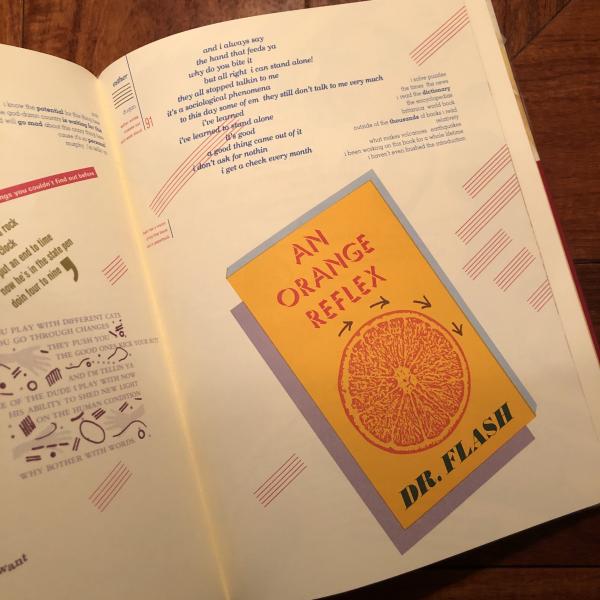 i know the potential for this
god-damn country is waiting for this
will go mad about the
cause it's so personal
ngs you couldn't find out before
rock
clock
put an end to time
now he's in the state pen
doin four to nine
U PLAY WITH DIFFERENT CATS
OU GO THROUGH CHANGES
THEY PUSH YOU
THE GOOD ONES KICK YOUR BUTT
AND I'M TELLIN YA
E OF THE DUDE I PLAY WITH NOW
HIS ABILITY TO SHED NEW LIGHT
ON THE HUMAN CONDITION
WHY BOTHER WITH WORDS
want
esther
91
and i always say
the hand that feeds ya
why do you bite it
but all right i can stand alone!
they all stopped talkin to me
it's a sociological phenomena
to this day some of em they still don't talk to me very much
i've learned
i've learned to stand alone
it's good
a good thing came out of it
i don't ask for nothin
i get a check every month
i solve puzzles
the times the news
i read the dictionary
the encyclopedias
britannica world book
outside of the thousands of books i read
relatively
what makes volcanoes earthquakes
i been working on this book for a whole lifetime
i haven't even finished the introduction
AN
ORANGE
REFLEX
DR. FLASH